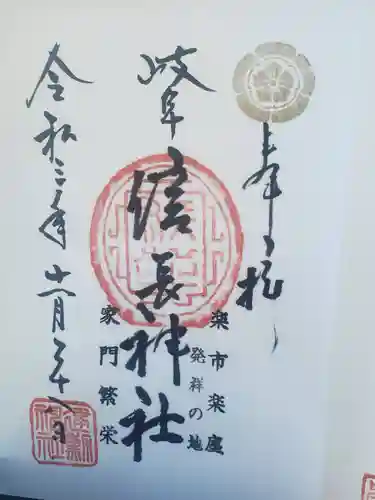 奉拝
楽市楽座
発祥の地
岐阜信長神社
家門繁栄
令和三年十一月二十八日